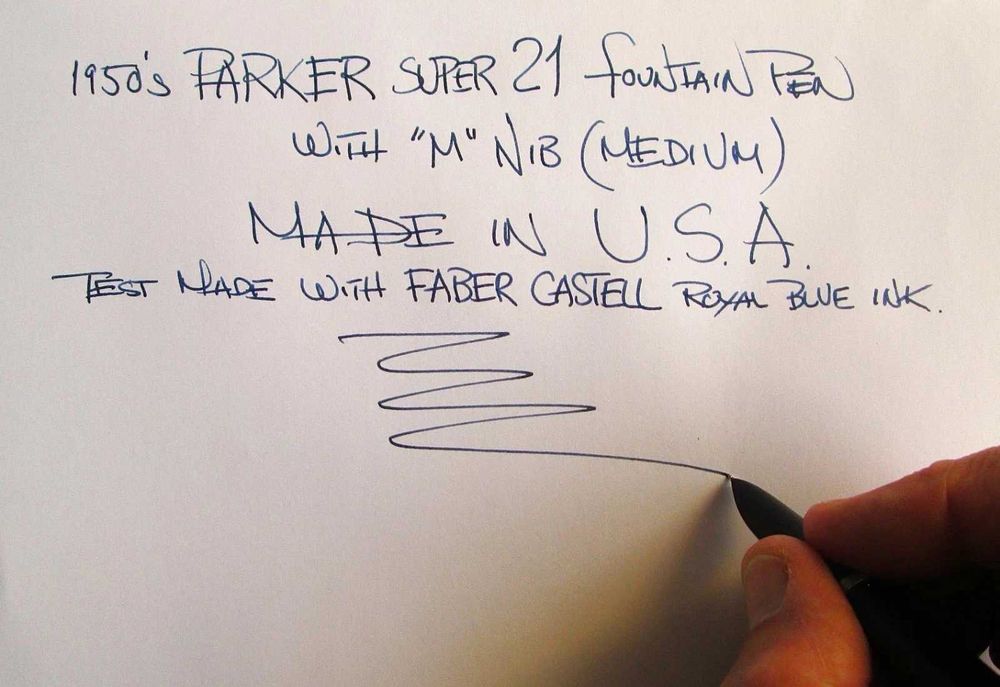 1950's PARKER SUPER 21 fOUNTAIN PEN
WITH "M" NIB (MEDIUM)
MADE IN U.S.A.
TEST MADE WITH FABER CASTELL ROYAL BLUE INK.